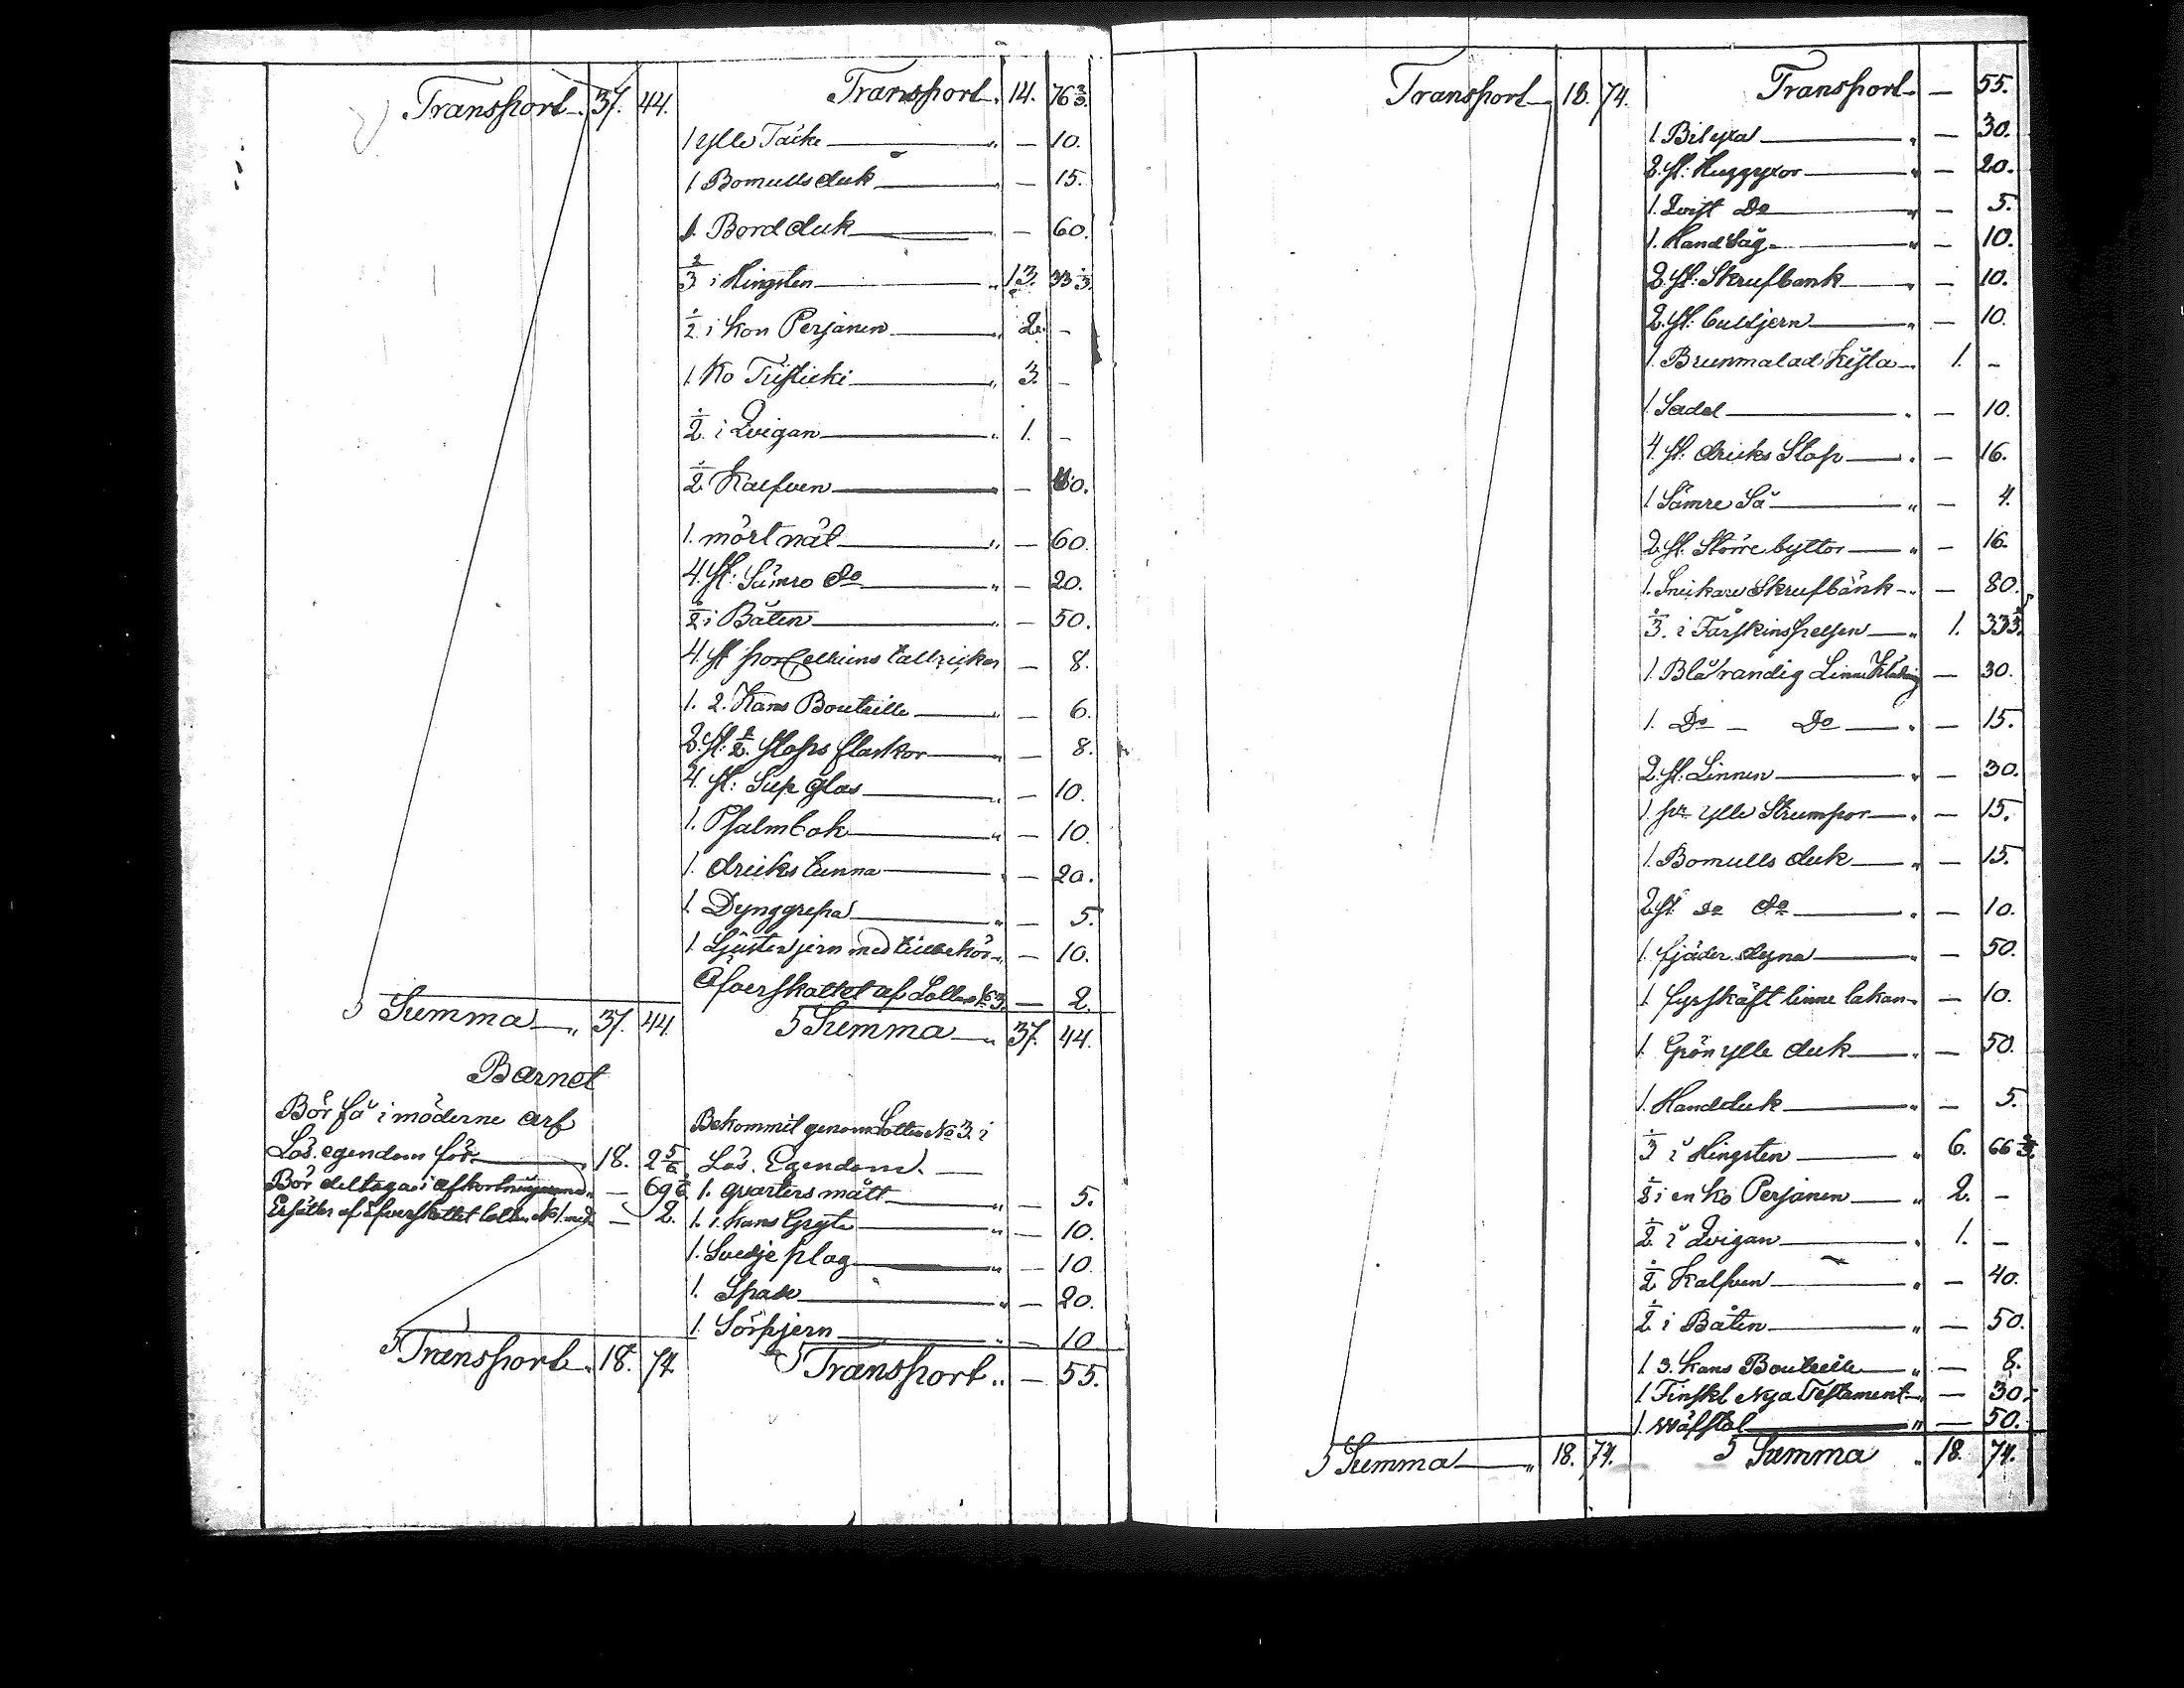 Transport 37. 44.
Transport 14. 76 2/3.
1 ylle Täcke " — 10.
1 Bomulls duk " — 15.
1. Bord duk " — 60.
2/3 i Hingsten " 13. 33 1/3.
1/2 i Kon Perjänen " 2. -
1. Ko Tusticki " 3. -
1/2 i Qvigan " 1. -
1/2 Kalfven " — 40.
1. mört nät " — 60.
4. st: Sämre do " — 20.
1/2 i Båten " — 50.
4. st porcellains tallrickar — 8.
1. 2. Kans Bouteille " — 6.
2. st: 1/2 stops flaskor " — 8.
4. st: Sup glas " — 10.
1. Psalmbok " — 10.
1. dricks tunna " — 20.
1. Dynggrepa " — 5.
1. Ljusterjern med tillbehör " — 10.
Öfverskottet af Lotten No 3. — 2.
Summa " 37. 44.
Summa " 37. 44.
Barnet
Bör få i möderne arf
Lös. egendom för 18. 2 5/6
Bör deltaga i afkortningarna — 69 1/6
Ersätter af öfverskottet lotten No 1. med — 2.
Transport 18. 74.
Bekommit genom Lotten No 3. i
Lös. Egendom. —
1. qvarters mått " — 5.
1. 1. Kans Gryta " — 10.
1. Svedje plog " — 10.
1. Spade " — 20.
1. Sörpjern " — 10.
Transport " — 55.
Transport 18. 74.
Transport — 55.
1. Bilyxa " — 30.
2. st: Huggyxor " — 20.
1. Qvist Do " — 5.
1. Handsåg " — 10.
2. st: Skrufbänk " — 10.
2. st: jern " — 10.
1. Brunmalad Kista 1. -
1. Sadel " — 10.
4. st: dricks Stop " — 16.
1 Sämre Så " — 4.
2. st. Större byttor " — 16.
1. Snickare Skrufbänk " — 80.
1/3. i Fårskinspelsen " 1. 33 1/3.
1. Blårandig Linne Klädning — 30.
1. Do - Do " — 15.
2. st: Linnen " — 30.
1. pr ylle Strumpor " — 15.
1. Bomulls duk " — 15.
2 st do do " — 10.
1. fjäder dyna " — 50.
1. fyrskäft linne lakan " — 10.
1. Grön ylle duk " — 50.
1. Handduk " — 5.
1/3 i Hingsten " 6. 66 2/3.
1/2 i en ko Perjänen " 2. -
1/2 i Qvigan " 1. -
1/2 Kalfven " — 40.
1/2 i Båten " — 50.
1. 3. Kans Bouteille " — 8.
1. Finskt Nya Testament " — 30.
1. Wäfstol " — 50.
Summa " 18. 74.
Summa " 18. 74.